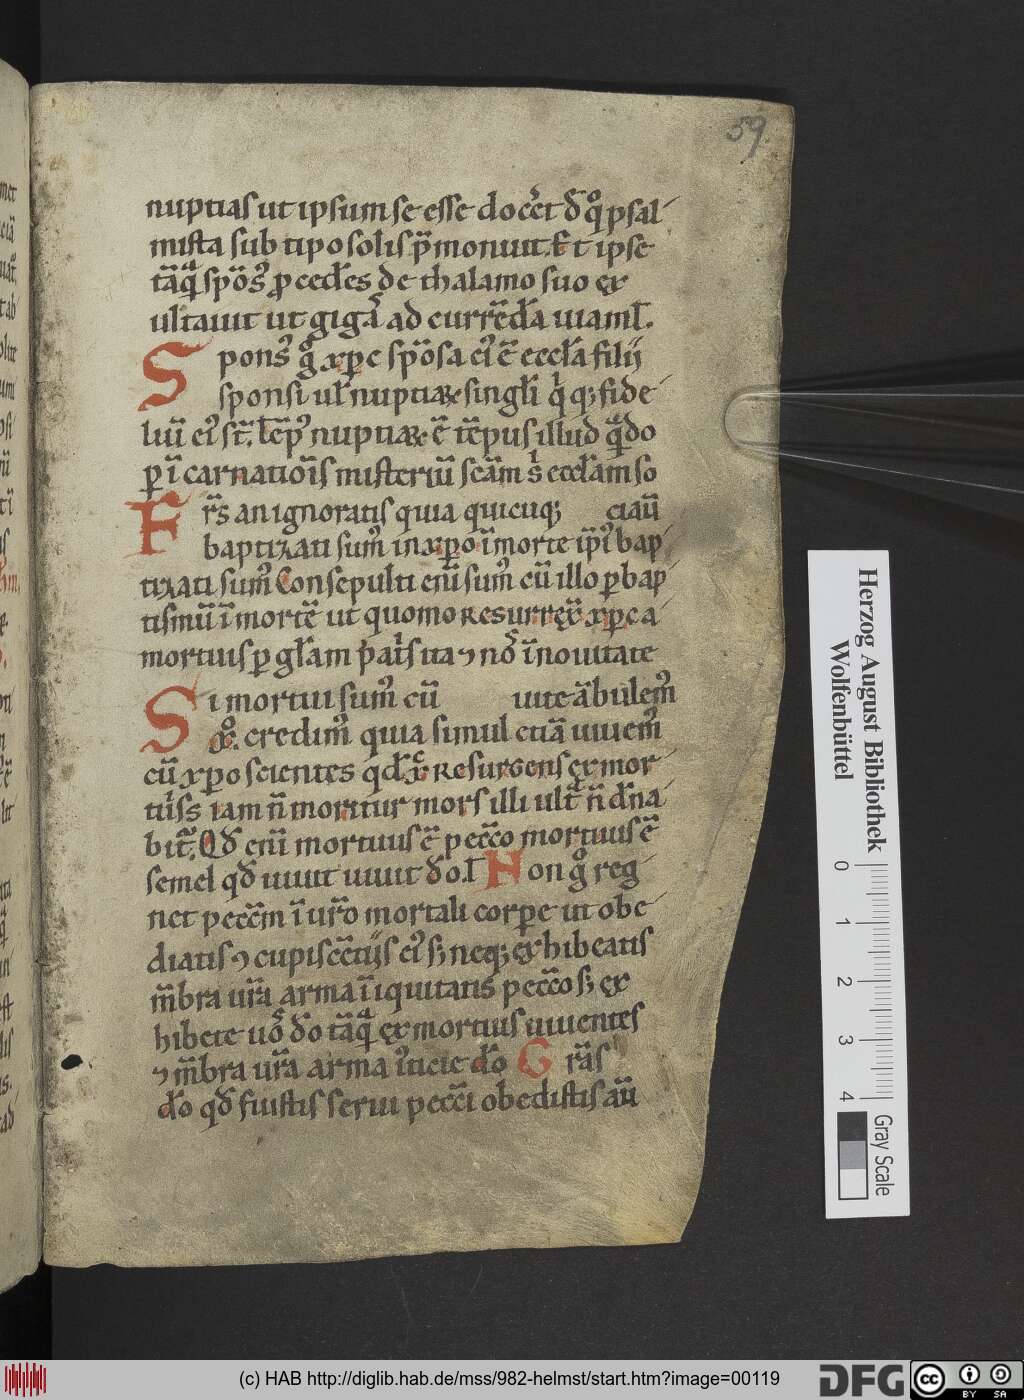 59.
nuptias ut ipsum se esse docet̄ ð q̊ psal-
mista sub tipo solis p̄monuit. Et ipse
tāq̄ spōs' procedēs de thalamo suo ex
ultauit ut gigā ad currēdā uiam l̄.
Spons' g̊ xp̄c spōsa ei' ē ecclā filij
sponsi ul' nuptiaꝝ singli q̇qꝫ fide-
liū ei' st̄.
nuptiaꝝ ē tēpus illud q̄do
ꝑ ī carnationis misteriū scām s' ecclām so
Frs̄ an ignoratis quia quicūqꝫ ciaū
baptizati sum' in xp̄o ī morte ip̄i' bap-
tizati sum' Consepulti eni sum' cū illo ꝑ bap-
tismū ī mortē ut quomo Resurrex̄ xp̄c a
mortuis ꝑ glām pat̄s ita ⁊ nos̄ ī nouitate
Si mortui sum' cū uite ābulem'
xp̊. credim' quia simul etiā uiuem'
cū xp̄o scientes qd̄ xp̄c Resurgens ex mor-
tuis iam n̄ moritur mors illi ult̄ n̄ dn̄a-
bit᷑. Qð eni mortuus ē peccō mortuus ē
semel qð uiuit uiuit ðo. l̄ Non g̊ reg-
net peccm̄ ī uro mortali corpe ut obe-
diatis ⁊cupiscētijs ei' sꝫ neqꝫ exhibeatis
m̄bra ura arma ī iquitatis peccō sꝫ ex
hibete uos̄ ðo tāq̄ ex mortuis uiuentes
⁊ m̄bra ura arma i'ticie dō Grās
dō qð fuistis serui pecci obedistis aū
Herzog August Bibliothek
Wolfenbüttel
0 1 2 3 4
Gray Scale
(c) HAB http://diglib.hab.de/mss/982-helmst/start.htm?image=00119
DFG
cc BY SA